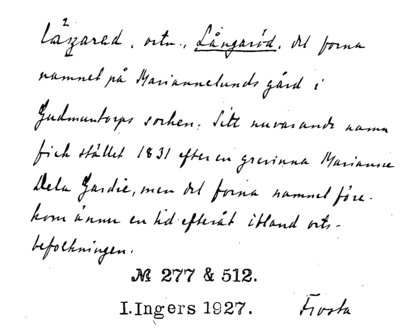 lågarød, ortn., Långaröd, det forna
namnet på Mariannelunds gård i
Gudmuntorps socken. Sitt nuvarande namn
fick stället 1831 efter en grevinna Marianne
Dela Gardie, men det forna namnet före-
kom ännu en tid efteråt ibland orts-
befolkningen.
№ 277 & 512.
I. Ingers 1927. Frosta